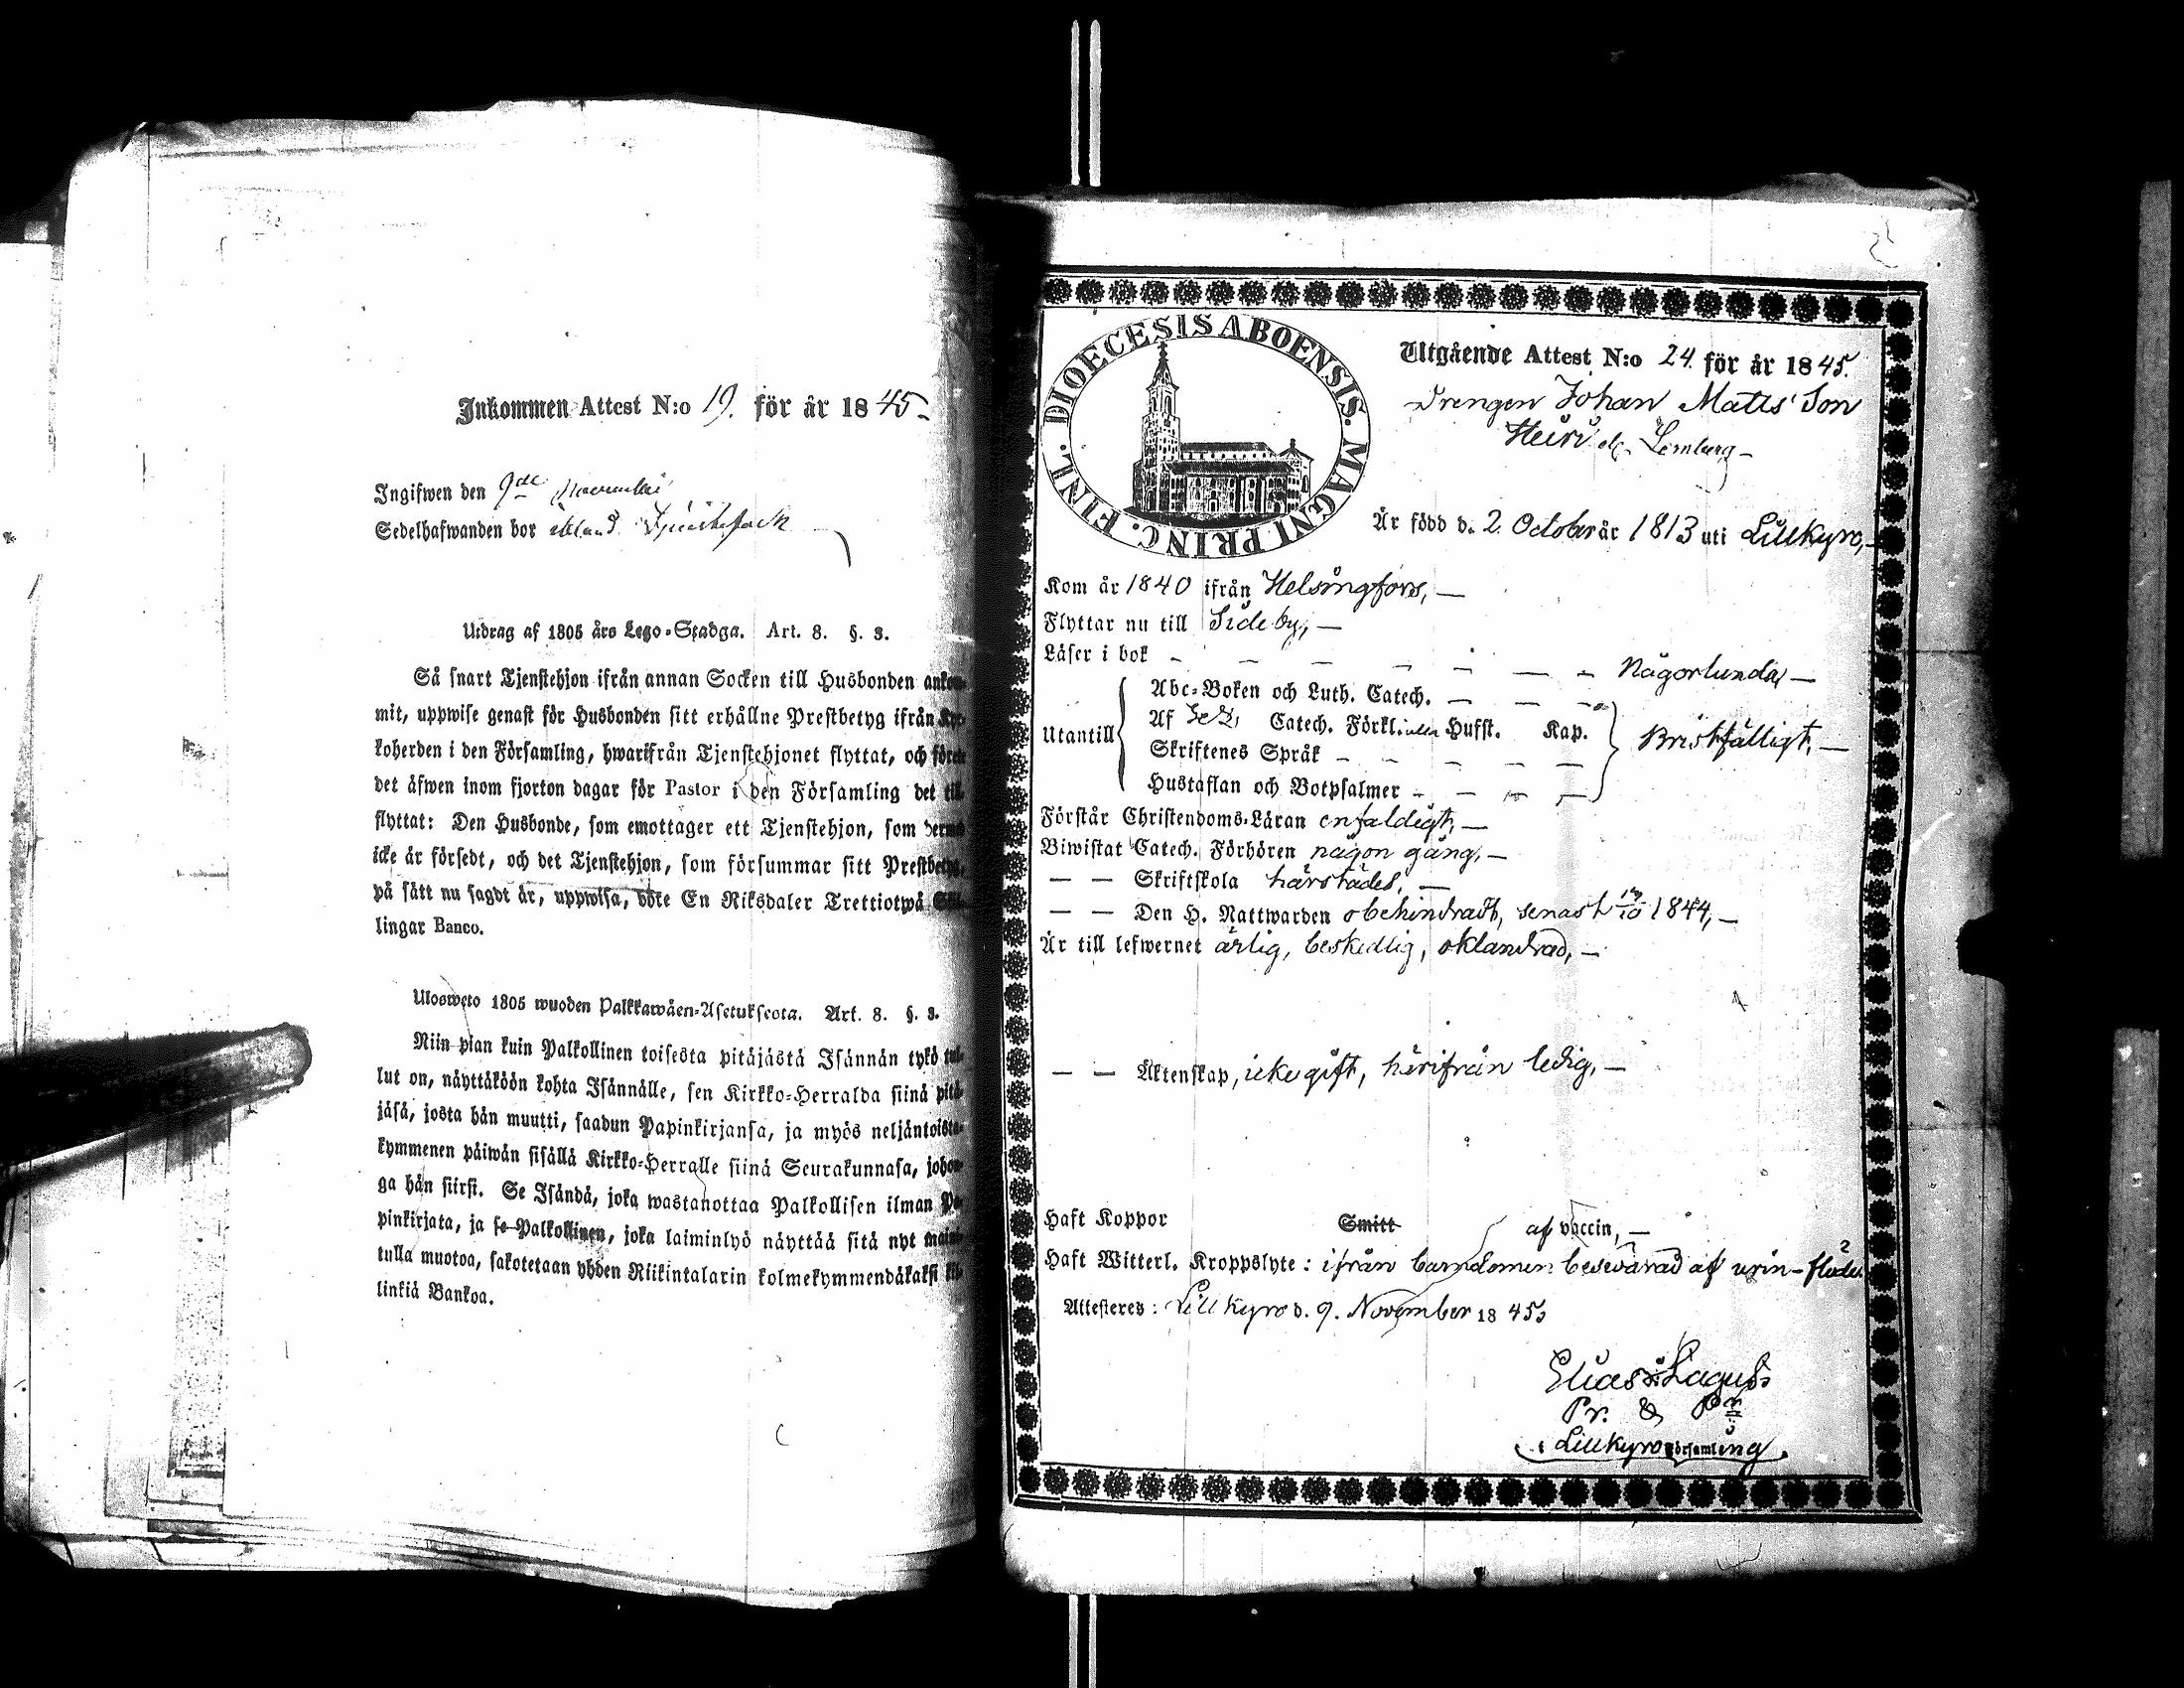 Inkommen Attest N:o 19. för år 1845
Ingifwen den 9de November
Sedelhafwanden bor
Utdrag af 1805 års Lego-Stadga. Art. 8. §. 3.
Så snart Tjenstehjon ifrån annan Socken till Husbonden ankom-
mit, uppwise genast för Husbonden sitt erhållne Prestbetyg ifrån Kyr-
koherden i den Församling, hwarifrån Tjenstehjonet flyttat, och förete
det äfwen inom fjorton dagar för Pastor i den Församling det till-
flyttat: Den Husbonde, som emottager ett Tjenstehjon, som dermed
icke är försedt, och det Tjenstehjon, som försummar sitt Prestbetyg,
på sätt nu sagdt är, uppwisa, böte En Riksdaler Trettiotwå Skil-
lingar Banco.
Ulosweto 1805 wuoden Palkkawäen-Asetuksesta. Art. 8. §. 3.
Niin pian kuin Palkollinen toisesta pitäjästä Isännän tykö tul-
lut on, näyttäköön kohta Isännälle, sen Kirkko-Herralda siinä pitä-
jäsä, josta hän muutti, saadun Papinkirjansa, ja myös neljäntoista-
kymmenen päiwän sisällä Kirkko-Herralle siinä Seurakunnasa, johon-
ga hän siirsi. Se Isändä, joka wastanottaa Palkollisen ilman Pa-
pinkirjata, ja se Palkollinen, joka laiminlyö näyttää sitä nyt maini-
tulla muotoa, sakotetaan yhden Riikintalarin kolmekymmendäkaksi kil-
linkiä Bankoa.
DIOECESIS ABOENSIS. MAGNI PRINC. FINL.
Utgående Attest N:o 24. för år 1845.
Drengen Johan Matts' Son
Heiri el. Lemberg
Är född d. 2. October år 1813 uti Lillkyro,
Kom år 1840 ifrån Helsingfors,
Flyttar nu till Sideby,
Läser i bok Någorlunda,
Utantill
Abc-Boken och Luth. Catech.
Af Catech. Förkl. Hufst. Kap.
Skriftenes Språk
Hustaflan och Botpsalmer
Bristfälligt,
Förstår Christendoms-Läran enfaldigt,
Biwistat Catech. Förhören någon gång,
— — Skriftskola härstädes,
— — Den H. Nattwarden obehindradt, senast 1844,
Är till lefwernet ärlig, beskedlig, oklandrad,
— — Äktenskap, icke gift, härifrån ledig,
Haft Koppor Smitt af vaccin,
Haft Witterl. Kroppslyte: ifrån barndomen besvärad af urin-flöde.
Attesteres: Lillkyro d. 9. November 1845,
Elias Lagus
Pr. & Pr
i Lillkyro Församling.